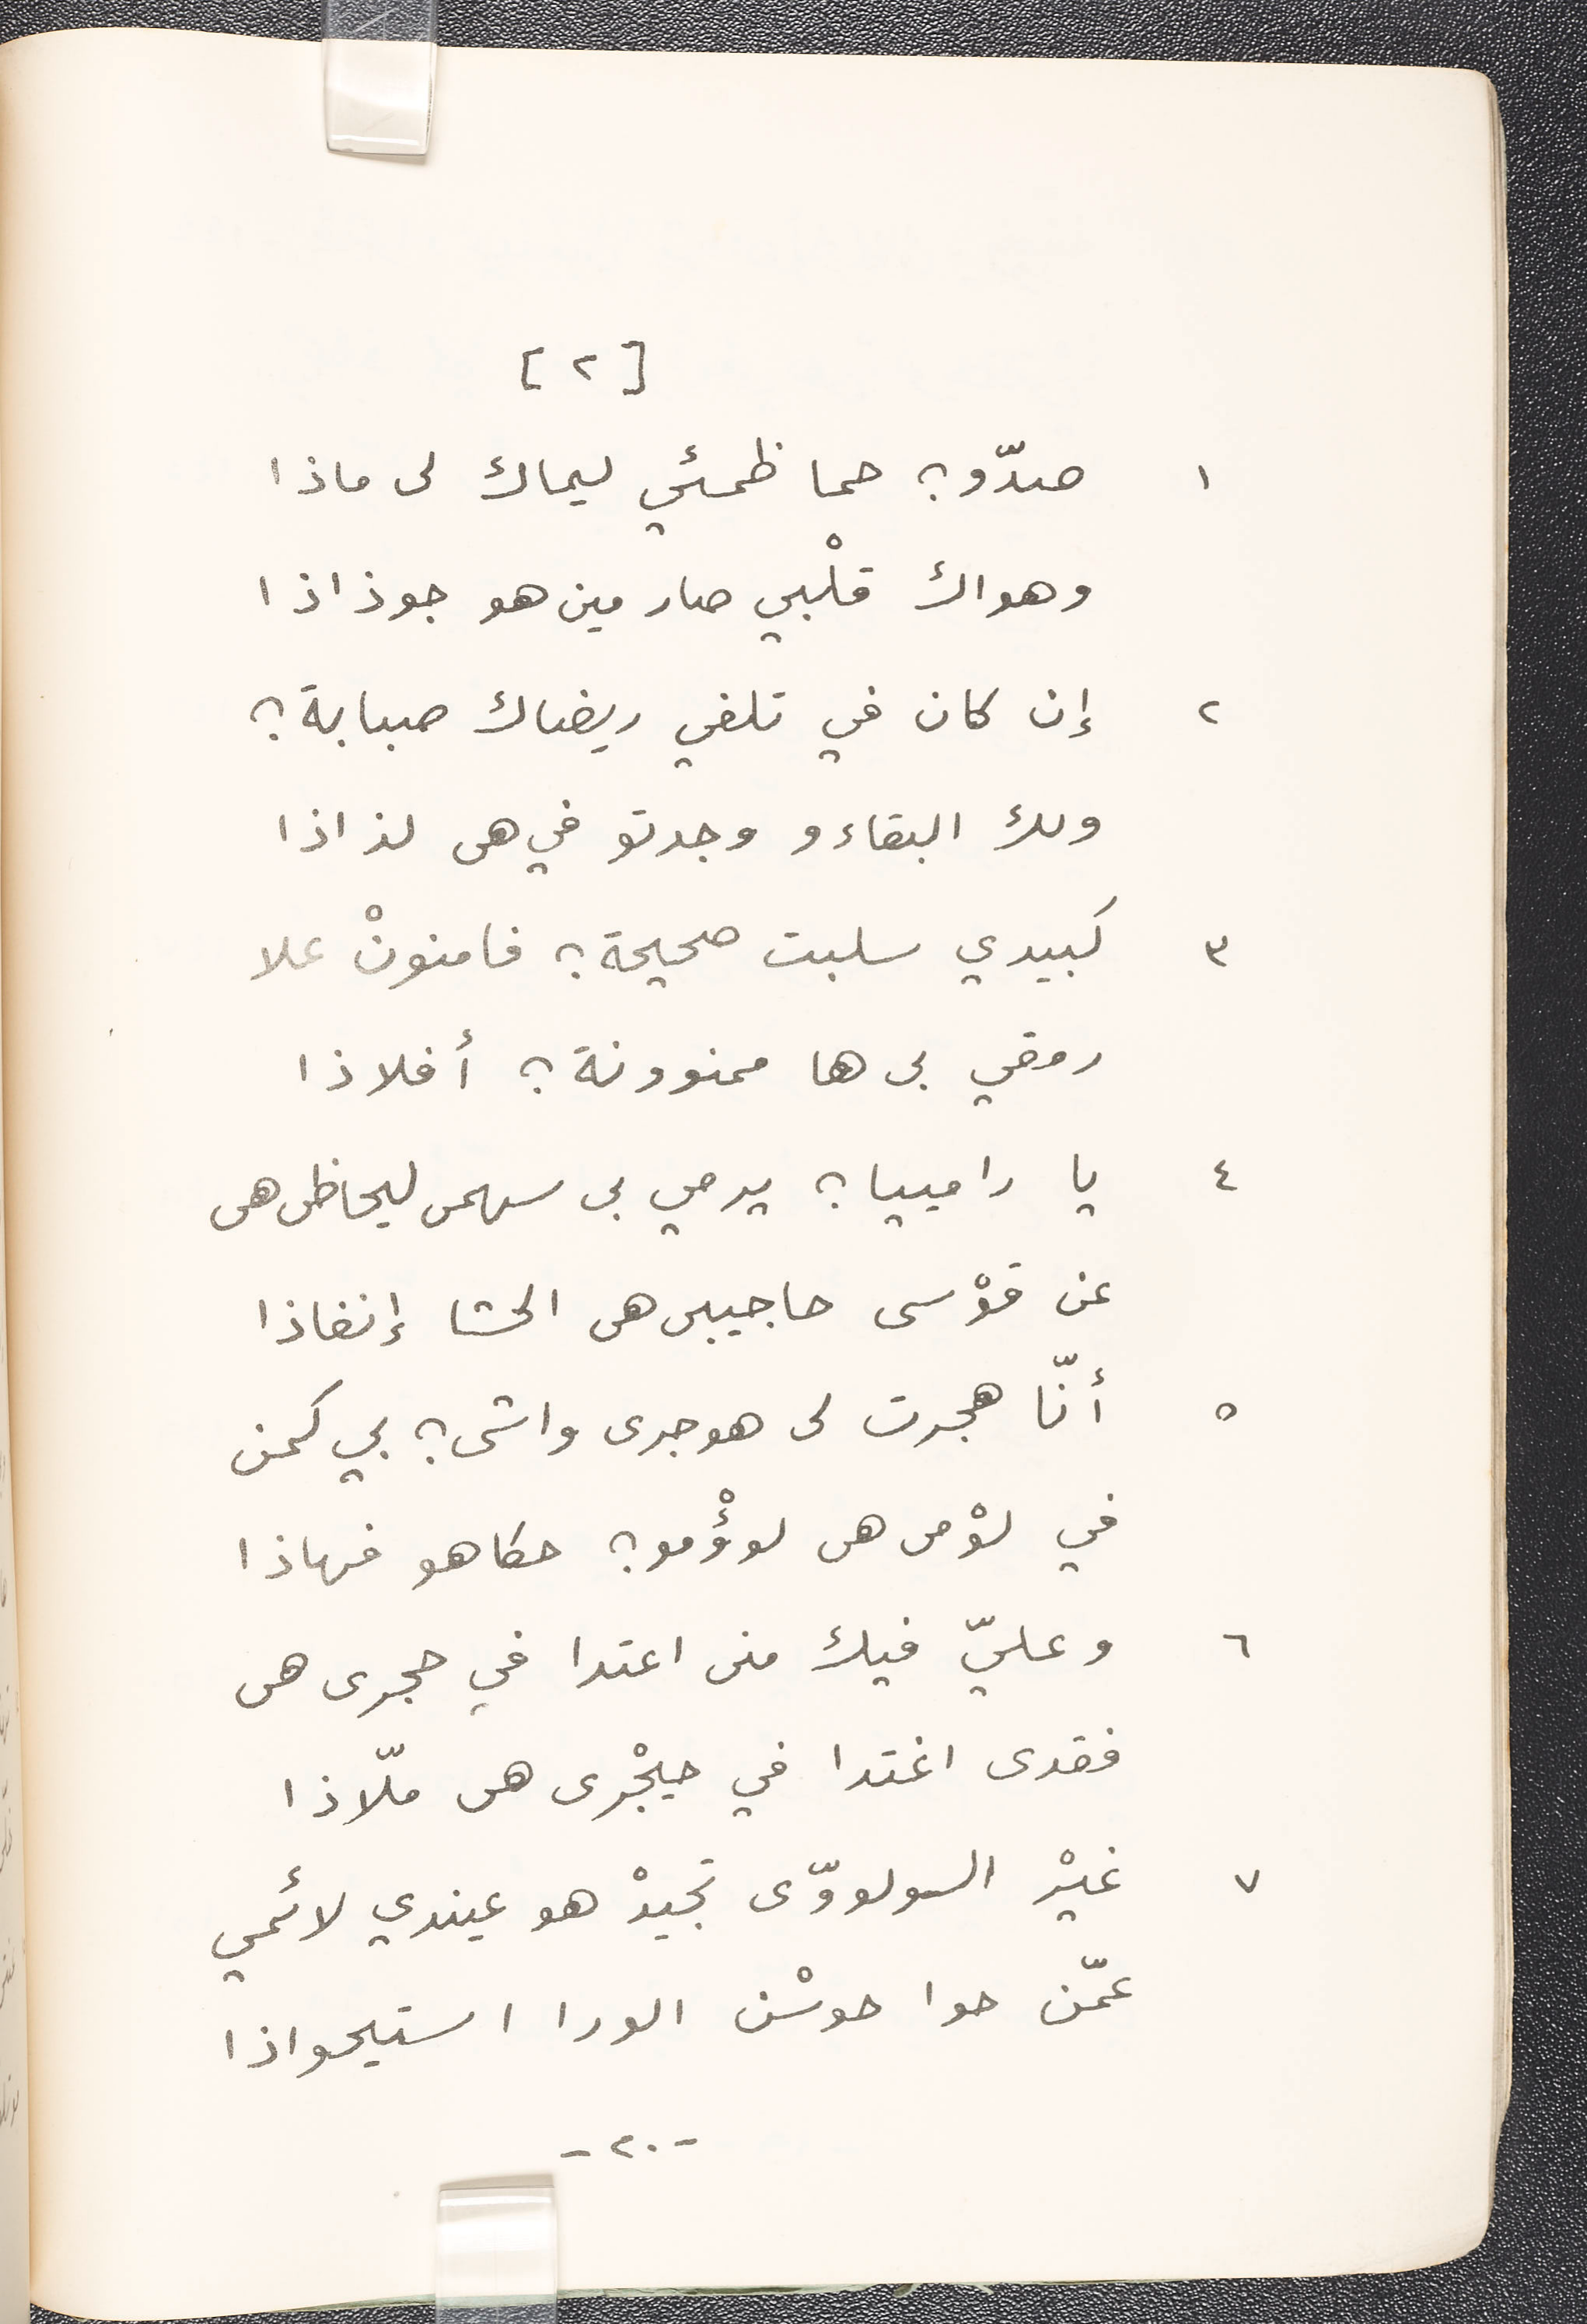 [ ٢ ]
١ صدّو؟ حما ظمئي ليماك لى ماذا
وهواك قلْبي صار مين هو جوذاذا
٢ إن كان في تلفي ريضاك صبابة؟
ولك البقاءو وجدتو في هى لذاذا
٣ كبيدي سلبت صحيحة؟ فامنونْ علا
رمقي بى ها ممنوونة؟ أفلاذا
٤ يا رامييا؟ يرمي بى سهمى ليحاظى هى
عن قوْسى حاجيبى هى الحشا إنفاذا
٥ أنّا هجرت لى هوجرى واشى؟ بي كمن
في لوْمى هى لوؤْمو؟ حكاهو فهاذا
٦ وعليّ فيك منى اعتدا في حجرى هى
فقدى اغتدا في حيجْرى هى ملّاذا
٧ غيْر السولووّى تجيدْ هو عيندي لائمي
عمّن حوا حوسْن الورا استيحواذا
-٢٠-